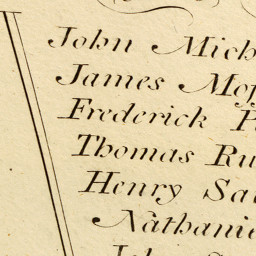 John Mich
James Mof
Frederick P
Thomas Ru
Henry Sa
Nathanie
John